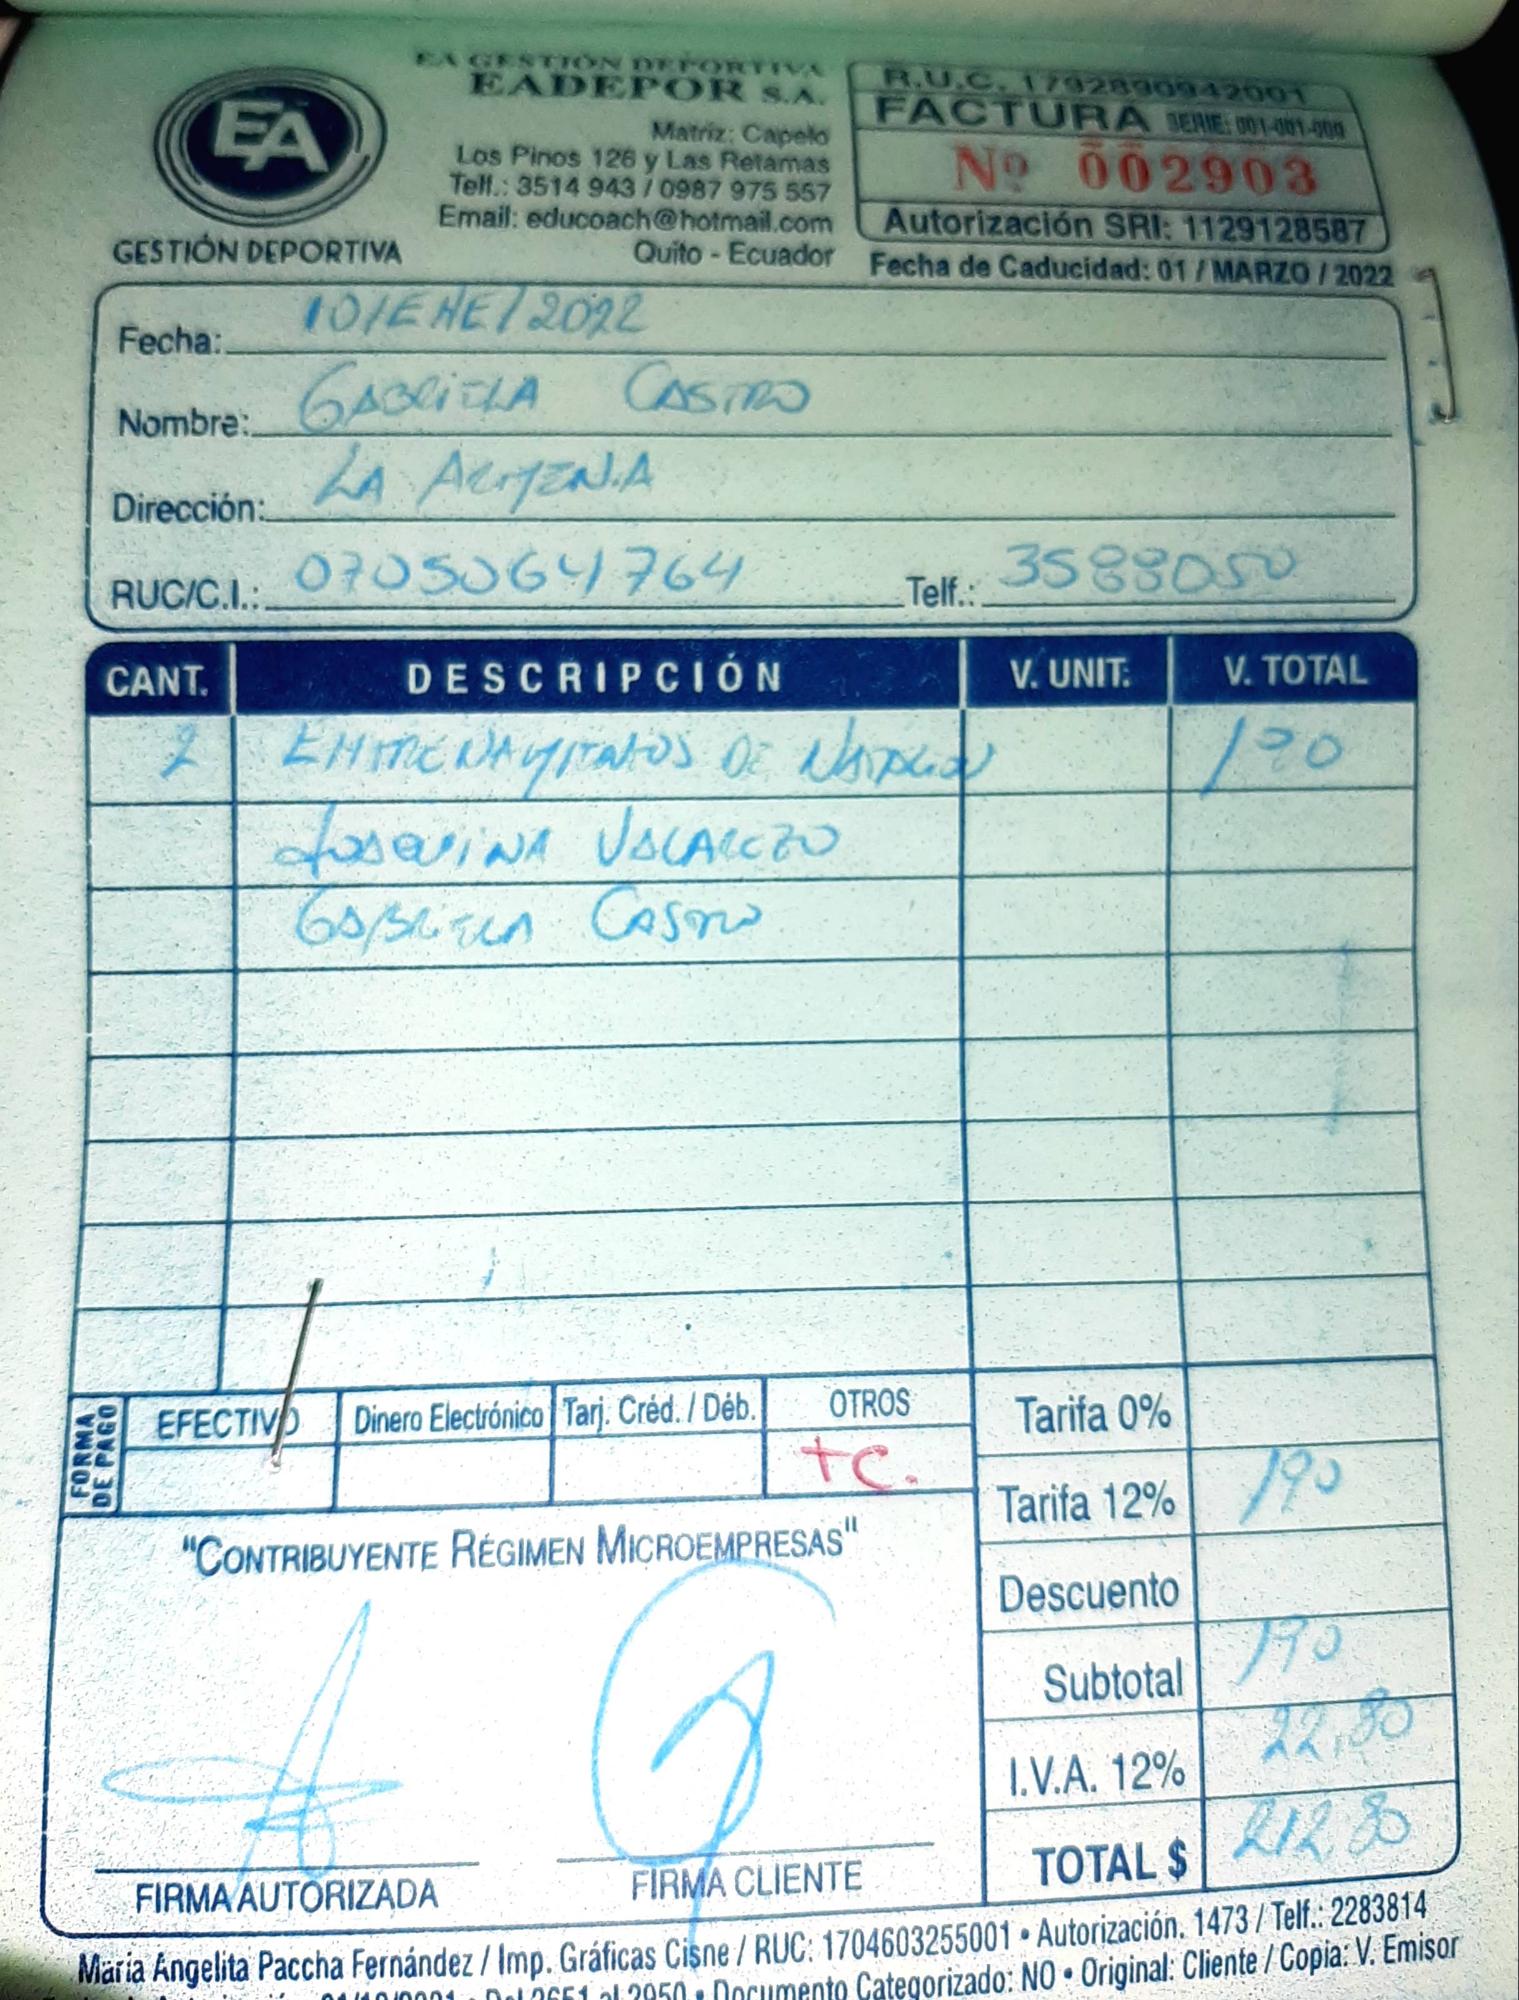 EA GESTIÓN DEPORTIVA
EADEPOR S.A.
Matriz: Capelo
Los Pinos 126 y Las Retamas
Telf.: 3514 943 / 0987 975 557
Email: educoach@hotmail.com
Quito - Ecuador
EA
GESTIÓN DEPORTIVA
R.U.C. 1792890942001
FACTURA SERIE: 001-001-000
Nº 002903
Autorización SRI: 1129128587
Fecha de Caducidad: 01 / MARZO / 2022
Fecha: 10/ENE/2022
Nombre: GABRIELA CASTRO
Dirección: LA ARMENIA
RUC/C.I.: 07050641764 Telf.: 3588050
CANT. DESCRIPCIÓN V. UNIT. V. TOTAL
2 ENTRENAMIENTOS DE NATACION 190
JOAQUINA VALAREZO
GABRIELA CASTRO
FORMA DE PAGO
EFECTIVO Dinero Electrónico Tarj. Créd. / Déb. OTROS
TC.
Tarifa 0%
Tarifa 12% 190
Descuento
Subtotal 190
I.V.A. 12% 22,80
TOTAL $ 212,80
"CONTRIBUYENTE RÉGIMEN MICROEMPRESAS"
FIRMA AUTORIZADA FIRMA CLIENTE
María Angelita Paccha Fernández / Imp. Gráficas Cisne / RUC: 1704603255001 • Autorización. 1473 / Telf.: 2283814
2651 al 2950 • Documento Categorizado: NO • Original: Cliente / Copia: V. Emisor